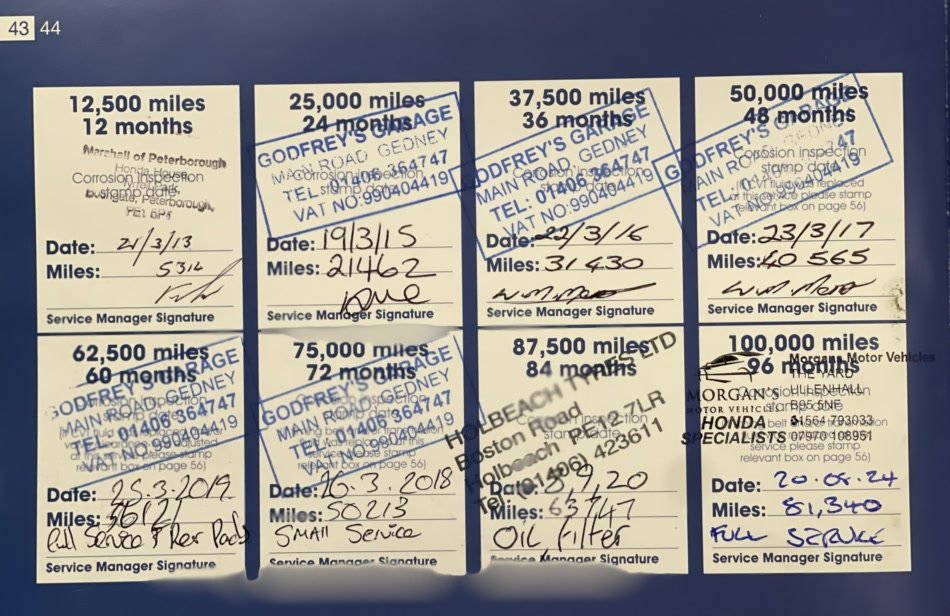 43 44
12,500 miles
12 months
Marshall of Peterborough
Honda House
Corrosion inspection
stamp date
Peterborough,
PE1 5PT
Date: 21/3/13
Miles: 5314
Service Manager Signature
25,000 miles
24 months
GODFREY'S GARAGE
MAIN ROAD GEDNEY
Corrosion inspection
stamp date
TEL: 01406 364747
VAT NO:990404419
Date: 19/3/15
Miles: 21462
Service Manager Signature
37,500 miles
36 months
GODFREY'S GARAGE
MAIN ROAD, GEDNEY
TEL: 01406 364747
VAT NO:990404419
Date: 22/3/16
Miles: 31430
Service Manager Signature
50,000 miles
48 months
GODFREY'S GARAGE
MAIN ROAD, GEDNEY
Corrosion inspection
stamp date
(If CVT fluid was replaced
at this service please stamp
relevant box on page 56)
VAT NO:990404419
Date: 23/3/17
Miles: 40565
Service Manager Signature
62,500 miles
60 months
GODFREY'S GARAGE
MAIN ROAD, GEDNEY
TEL: 01406 364747
VAT NO:990404419
service please stamp
relevant box on page 56)
Date: 25.3.2019
Miles: 56121
Full Service & Rear Pads
Service Manager Signature
75,000 miles
72 months
GODFREY'S GARAGE
MAIN ROAD, GEDNEY
TEL: 01406 364747
VAT NO:990404419
service please stamp
relevant box on page 56)
Date: 26.3.2018
Miles: 50213
SMAll Service
Service Manager Signature
87,500 miles
84 months
HOLBEACH TYRES LTD
Boston Road
Holbeach PE12 7LR
Tel: (01406) 423611
Date: 2,9,20
Miles: 63747
OIL Filter
Service Manager Signature
100,000 miles
96 months
Morgans Motor Vehicles
THE YARD
ULLENHALL
B95 5NE
MORGAN'S
MOTOR VEHICLES
HONDA
SPECIALISTS
01564 793033
07970 108951
service please stamp
relevant box on page 56)
Date: 20.08.24
Miles: 81,340
FULL SERVICE
Service Manager Signature